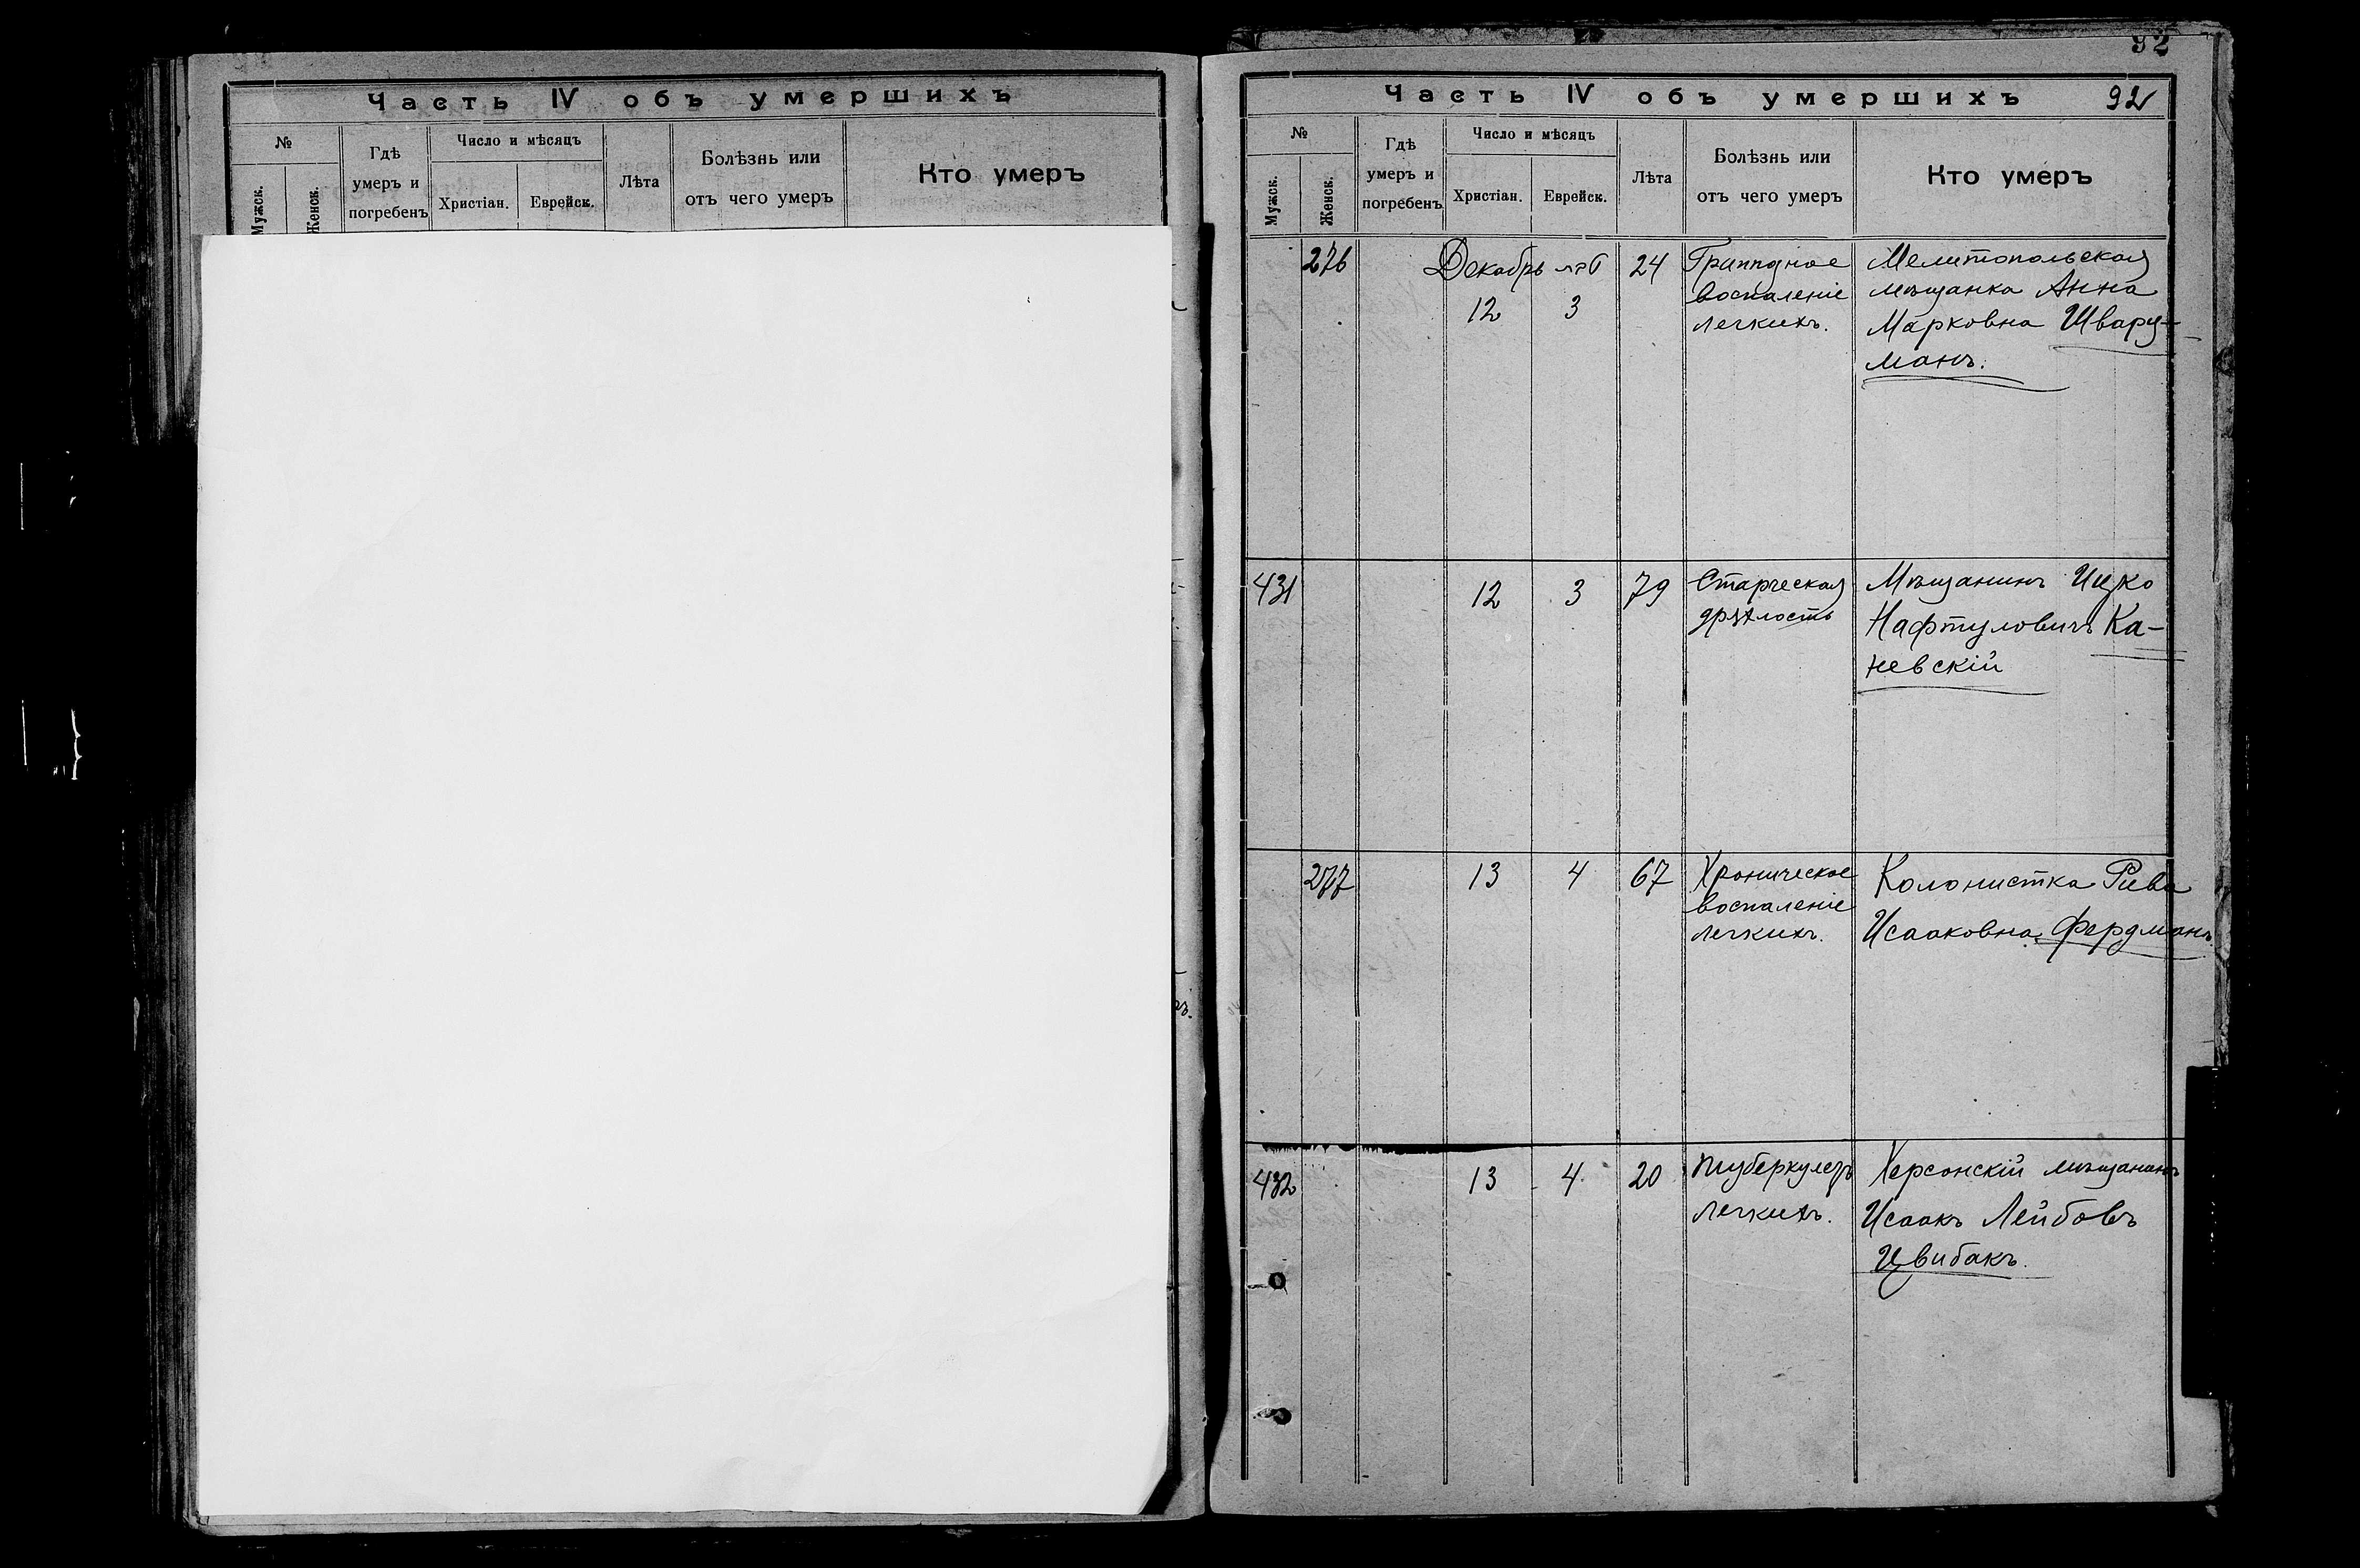 Часть IV объ умершихъ
№
Мужск.
Женск.
Гдѣ
умеръ и
погребенъ
Число и мѣсяцъ
Христіан.
Еврейск.
Лѣта
Болѣзнь или
отъ чего умеръ
Кто умеръ
92
Часть IV объ умершихъ
92
№
Мужск.
Женск.
Гдѣ
умеръ и
погребенъ
Число и мѣсяцъ
Христіан.
Еврейск.
Лѣта
Болѣзнь или
отъ чего умеръ
Кто умеръ
276
Декабрь
12
3
24
Гриппозное
воспаленіе
легкихъ.
Мелитопольская
мѣщанка Анна
Марковна Шварц-
манъ.
431
12
3
79
Старческая
дряхлость
Мѣщанинъ Ицко
Нафтуловичъ Ка-
невскій
277
13
4
67
Хроническое
воспаленіе
легкихъ.
Колонистка Рива
Исааковна Фердманъ.
432
13
4
20
Туберкулезъ
легкихъ.
Херсонскій мѣщанинъ
Исаакъ Лейбовъ
Цвибакъ.